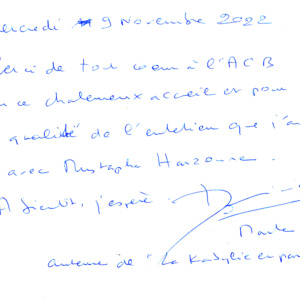 ercredi 9 Novembre 2022
erci de tout coeur à l'ACB
ce chaleureux accueil et pour
qualité de l'entretien que j'a
avec Mustapha Harzoune.
A bientôt, j'espère.
auteure de "La Kabylie en par